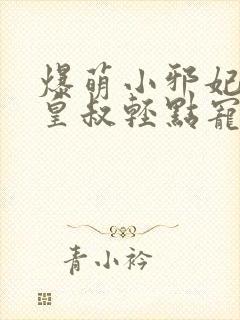 爆萌小邪妃
皇叔輕點寵
青小衿